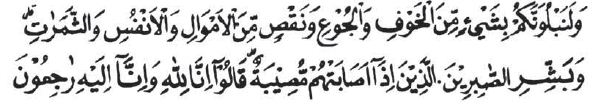 وَلَنَبْلُوَنَّكُمْ بِشَيْءٍ مِّنَ الْخَوْفِ وَالْجُوْعِ وَنَقْصٍ مِّنَ الْاَمْوَالِ وَالْاَنْفُسِ وَالثَّمَرٰتِ ؕ
وَبَشِّرِ الصّٰبِرِيْنَ . الَّذِيْنَ اِذَآ اَصَابَتْهُمْ مُّصِيْبَةٌ ۙ قَالُوْٓا اِنَّا لِلّٰهِ وَاِنَّآ اِلَيْهِ رٰجِعُوْنَ